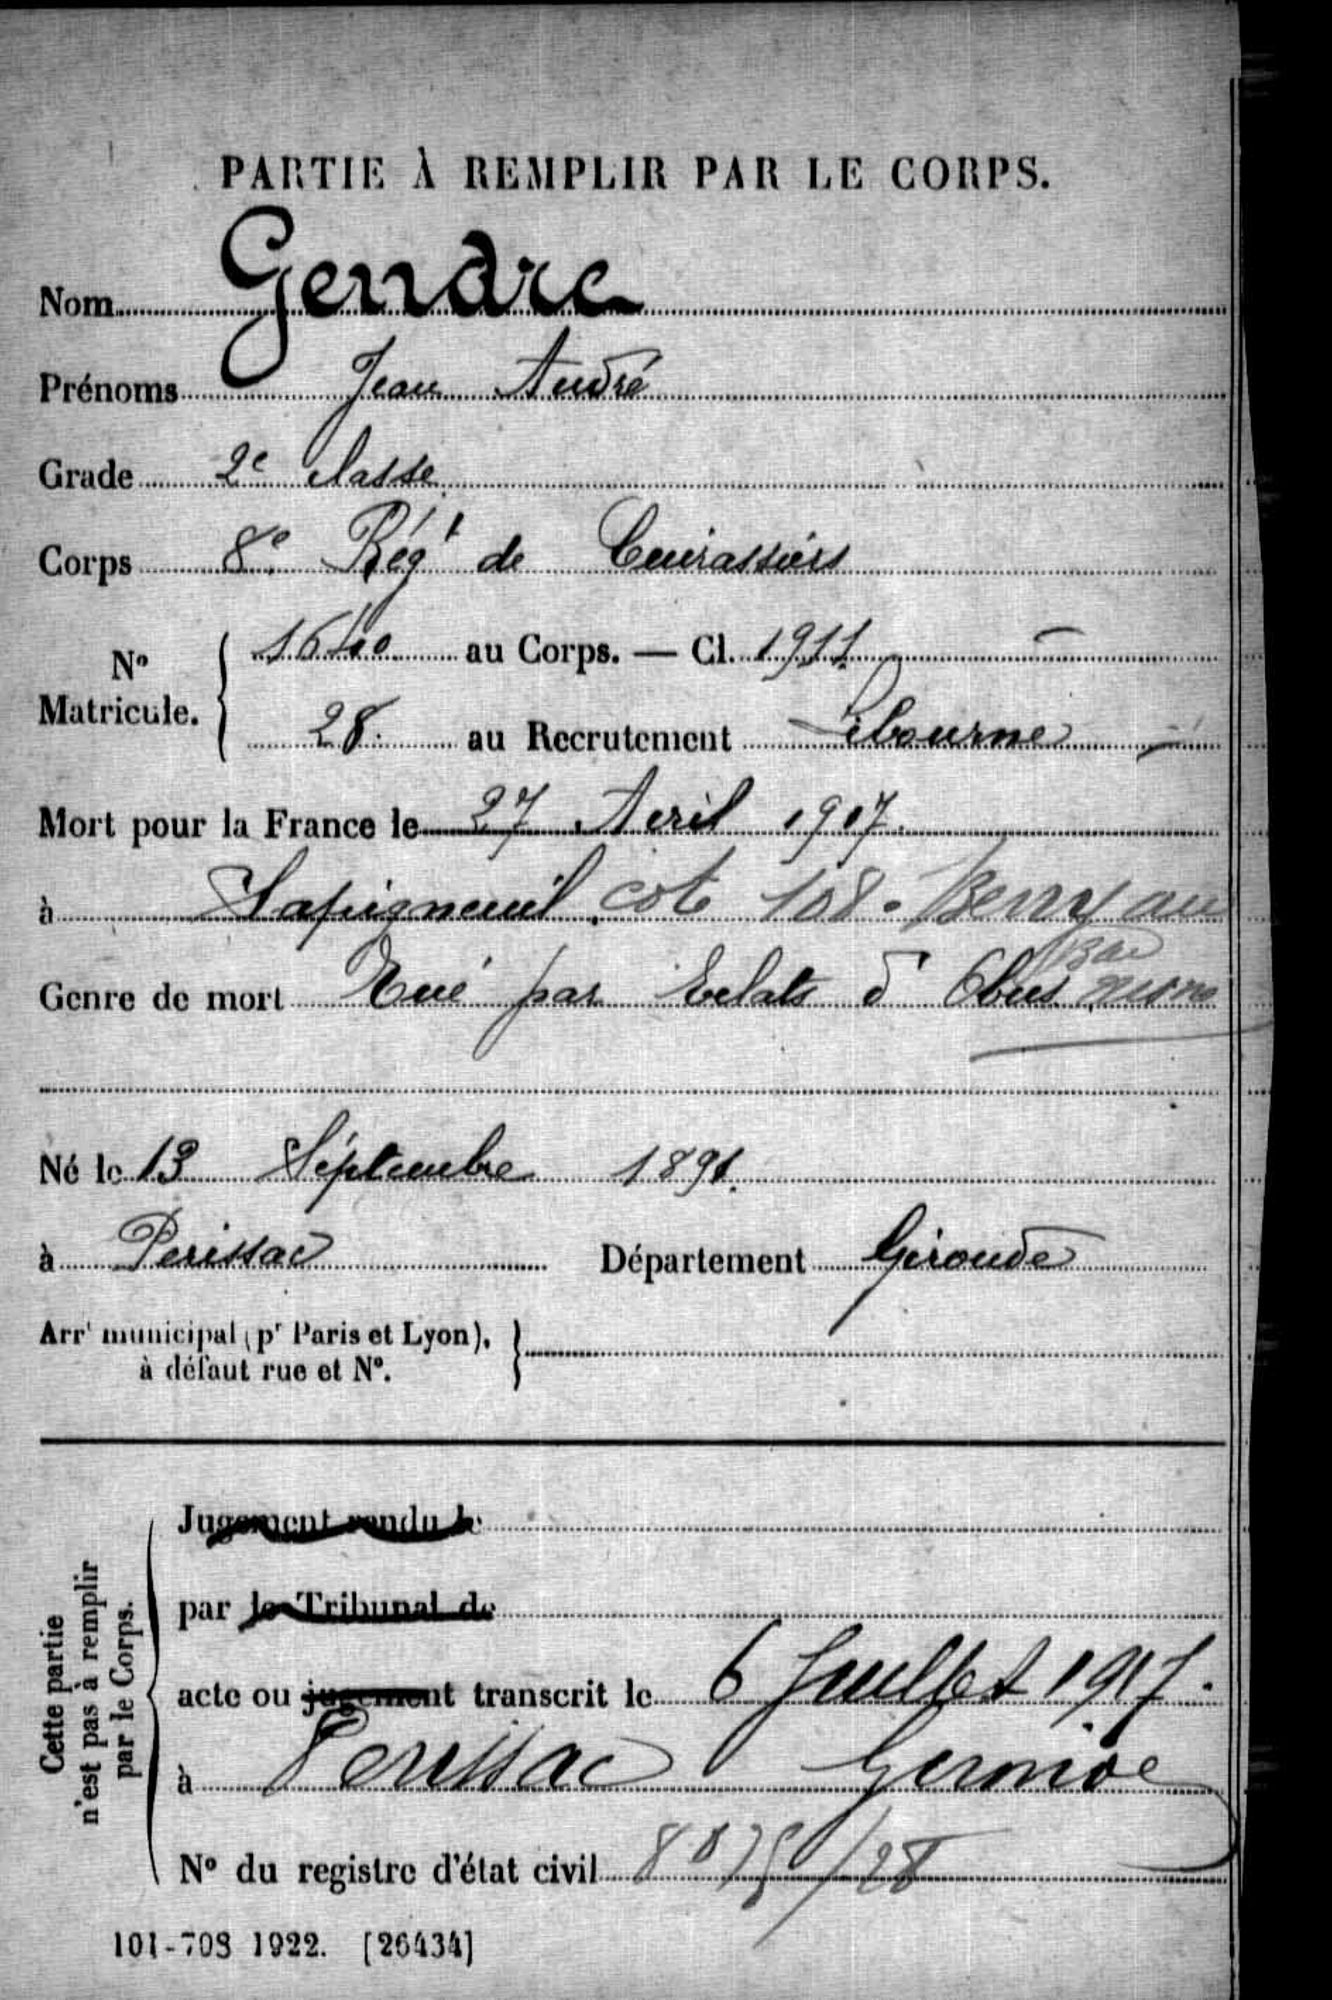 PARTIE À REMPLIR PAR LE CORPS.
Nom Gendre
Prénoms Jean André
Grade 2e classe
Corps 8e Régt de Cuirassiers
N° Matricule. { 1640 au Corps. — Cl. 1911
28. au Recrutement Libourne
Mort pour la France le 27 Avril 1917.
à Sapigneuil, cote 108. Berry au
Bac
Genre de mort Tué par Eclats d'Obus
Né le 13 Séptembre 1891.
à Perissac Département Gironde
Arrt municipal (pr Paris et Lyon), à défaut rue et N°.
Cette partie n'est pas à remplir par le Corps.
Jugement rendu le
par le Tribunal de
acte ou jugement transcrit le 6 Juillet 1917.
à Perissac Gironde
N° du registre d'état civil
101-708 1922. [26434]